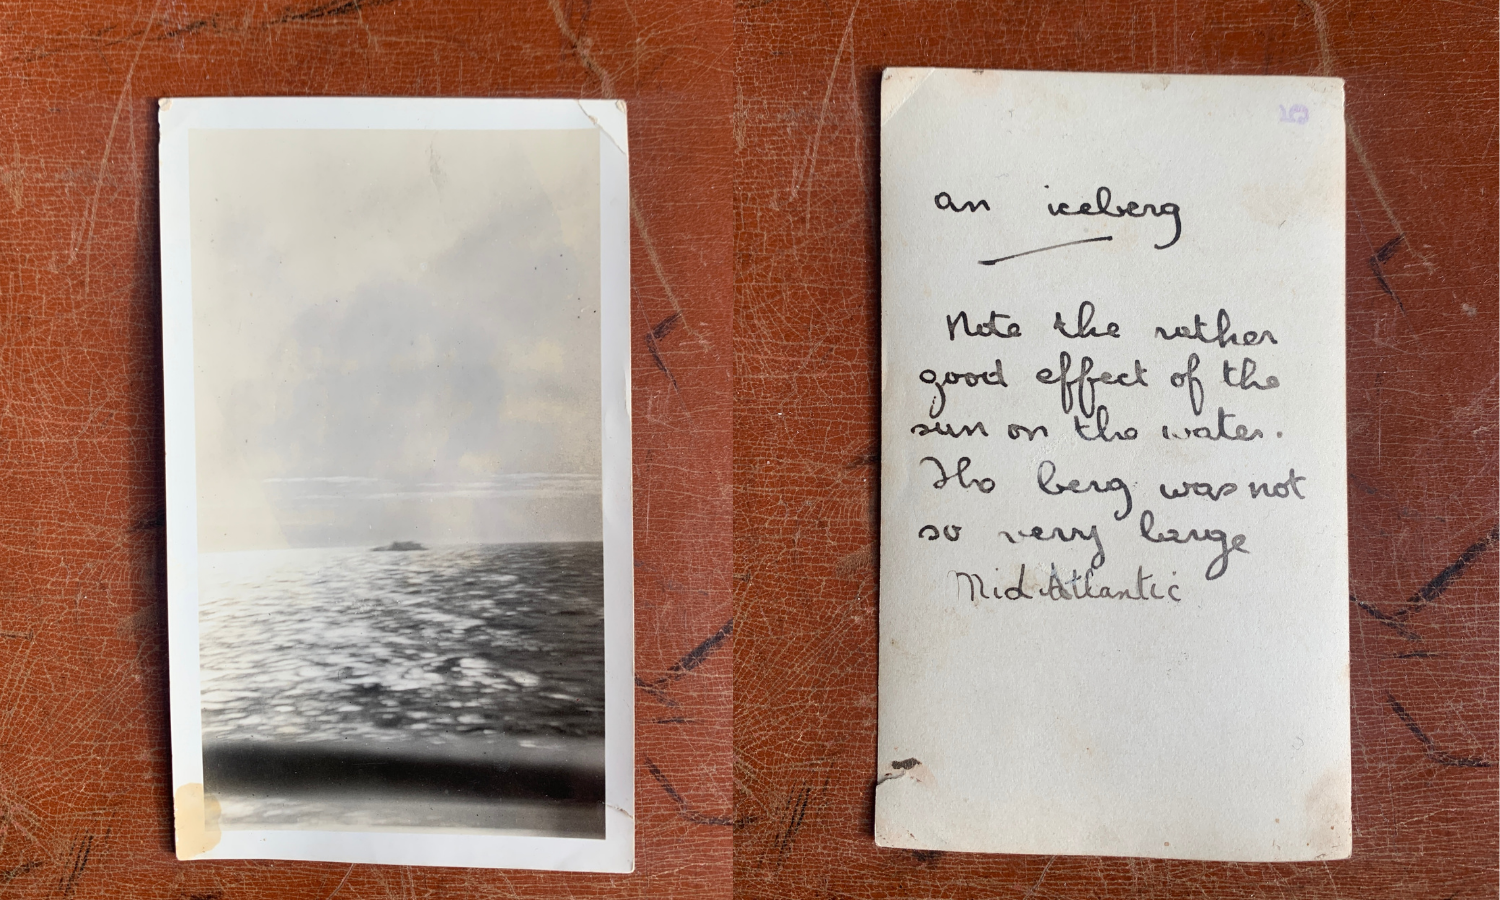 an iceberg
Note the rather
good effect of the
sun on the water.
The berg was not
so very large
Mid Atlantic